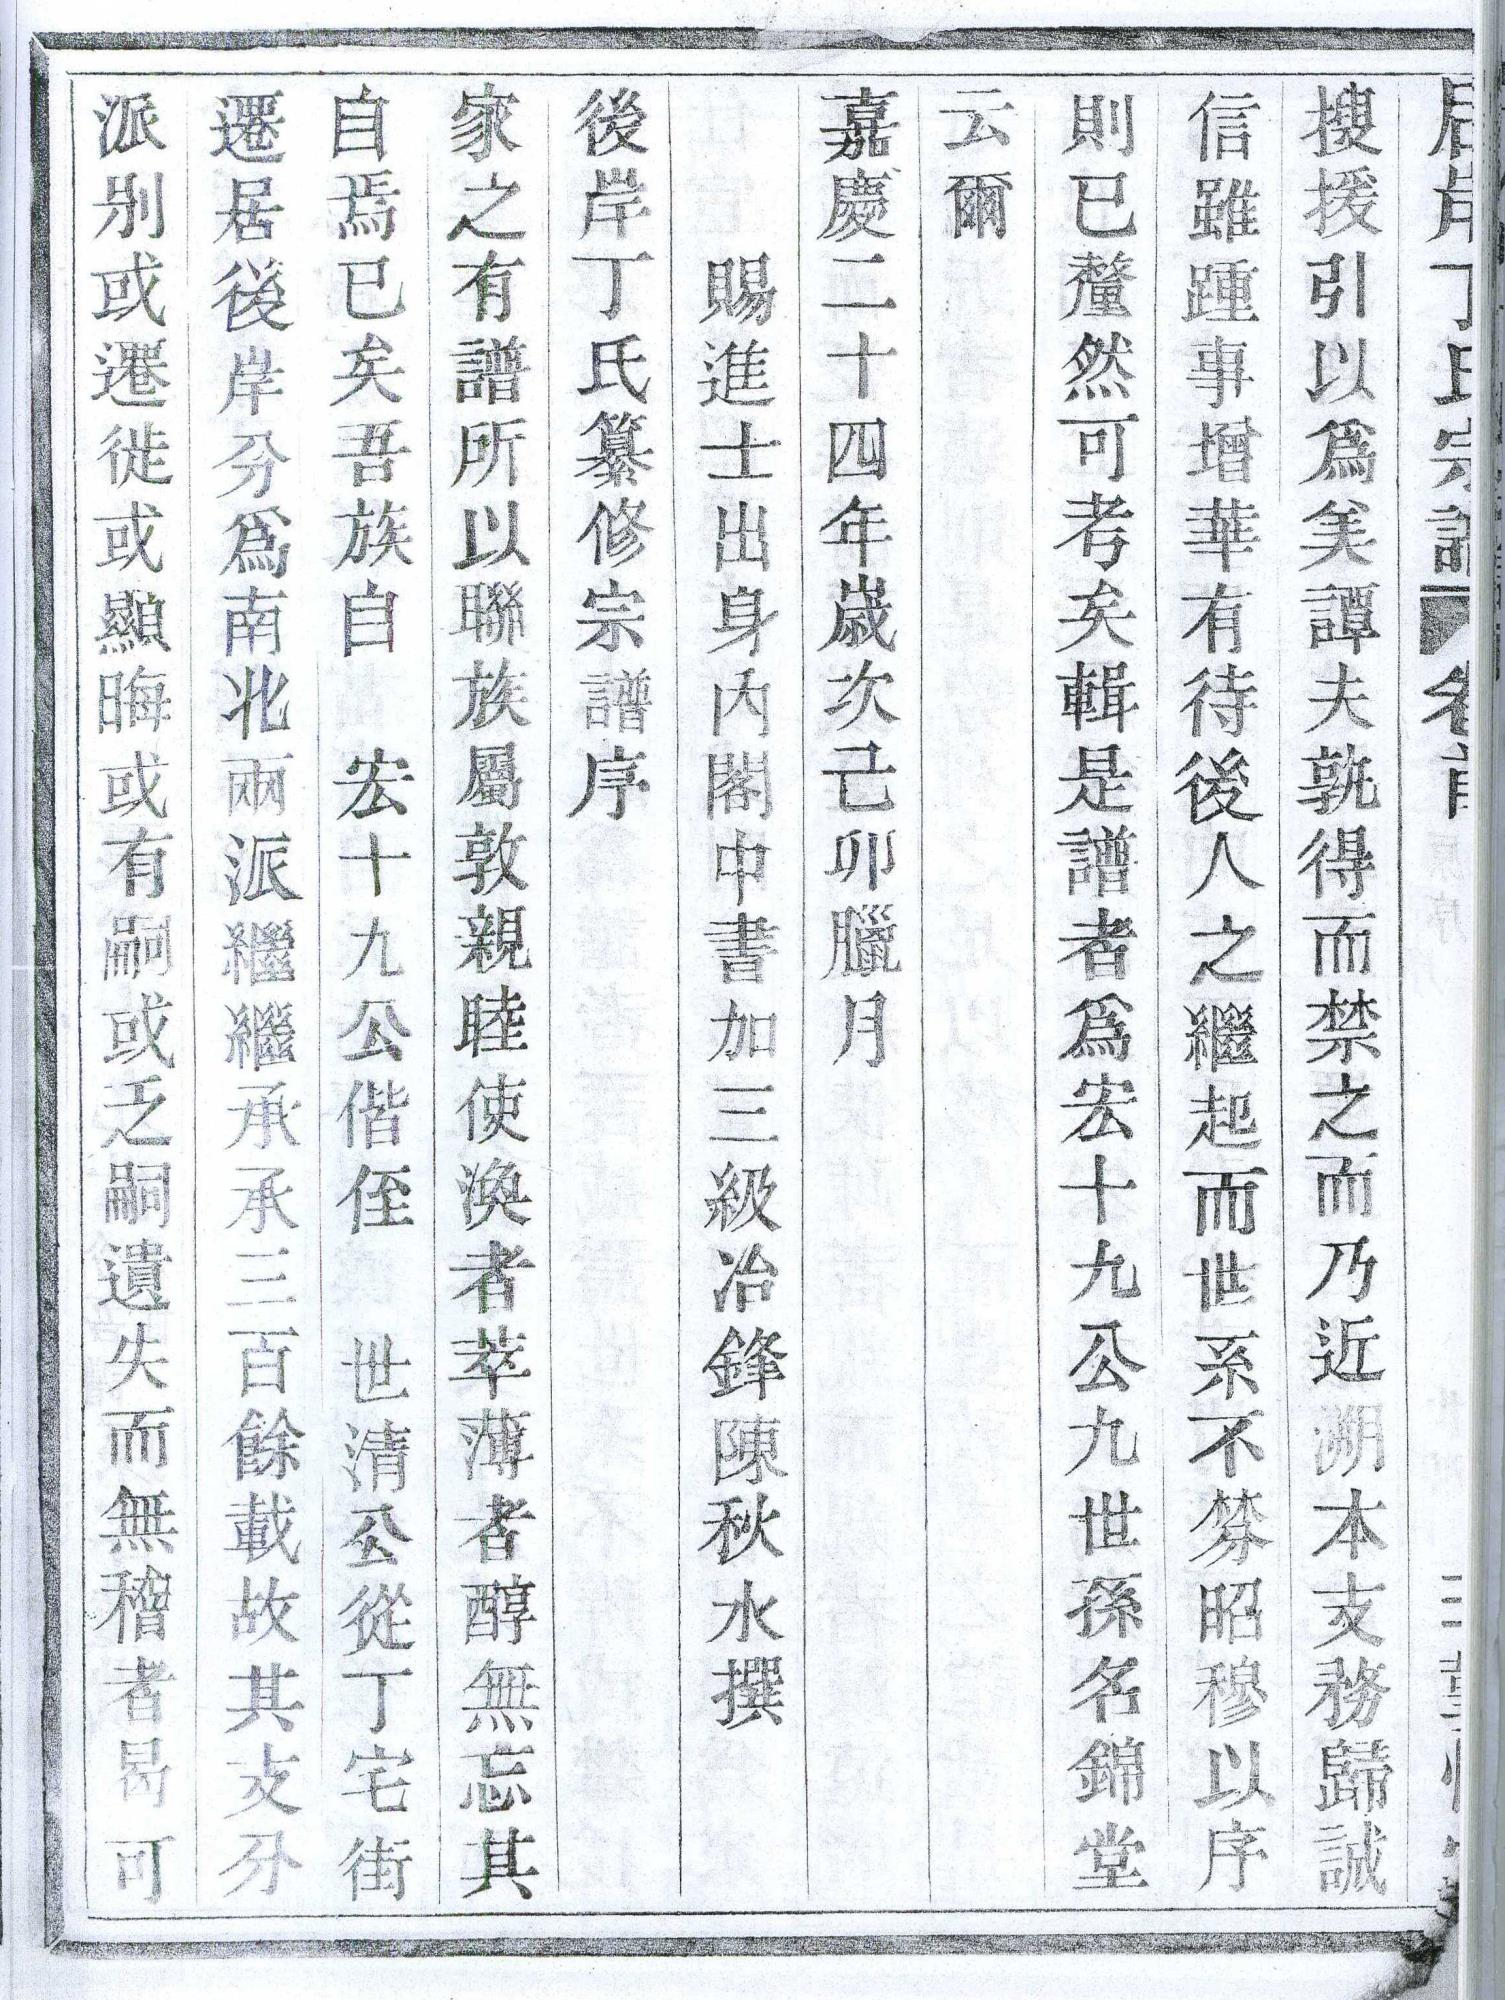 丁氏宗譜 卷首
搜援引以爲美譚夫孰得而禁之而乃近溯本支務歸誠
信雖踵事增華有待後人之繼起而世系不棼昭穆以序
則已釐然可考矣輯是譜者爲宏十九公九世孫名錦堂
云爾
嘉慶二十四年歲次己卯臘月
賜進士出身內閣中書加三級冶鋒陳秋水撰
後岸丁氏纂修宗譜序
家之有譜所以聯族屬敦親睦使渙者萃薄者醇無忘其
自焉已矣吾族自 宏十九公偕侄 世清公從丁宅街
遷居後岸分爲南北兩派繼繼承承三百餘載故其支分
派别或遷徙或顯晦或有嗣或乏嗣遺失而無稽者曷可